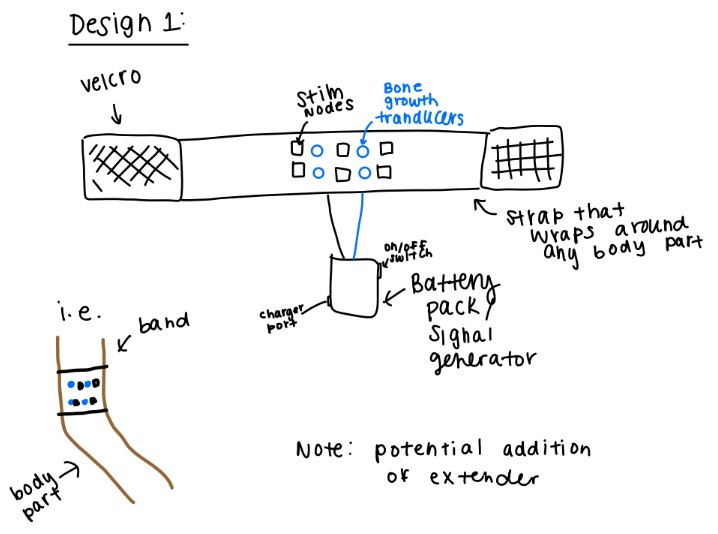 Design 1:
velcro
Stim
Nodes
Bone
growth
tranducers
Strap that
wraps around
any body part
on/off
switch
charger
port
Battery
pack/
signal
generator
i.e.
band
body
part
Note: potential addition
of extender